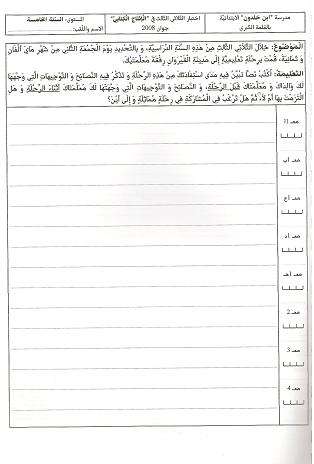 مدرسة "ابن خلدون" الابتدائية
بالقلعة الكبرى
اختبار الثلاثي الثالث في "الإنتاج الكتابي"
جوان 2008
المستوى: السنة الخامسة
الاسم واللقب:
الموضوع: خلال الثلاثي الثالث من هذه السنة الدراسية، و بالتحديد يوم الجمعة الثاني من شهر ماي ألفان
و ثمانية، قمت برحلة تعليمية إلى مدينة القيروان رفقة معلمتيك.
التعليمة: أكتب نصا تبين فيه مدى استفادتك من هذه الرحلة و تذكر فيه النصائح و التوجيهات التي وجهها
لك والداك و معلمتاك قبل الرحلة، و النصائح و التوجيهات التي وجهتها لك معلمتاك أثناء الرحلة و هل
التزمت بها أم لا، ثم هل ترغب في المشاركة في رحلة مماثلة و إلى أين؟
معـ 1أ
معـ 1ب
معـ 1ج
معـ 1د
معـ 1هـ
معـ 2
معـ 3
معـ 4